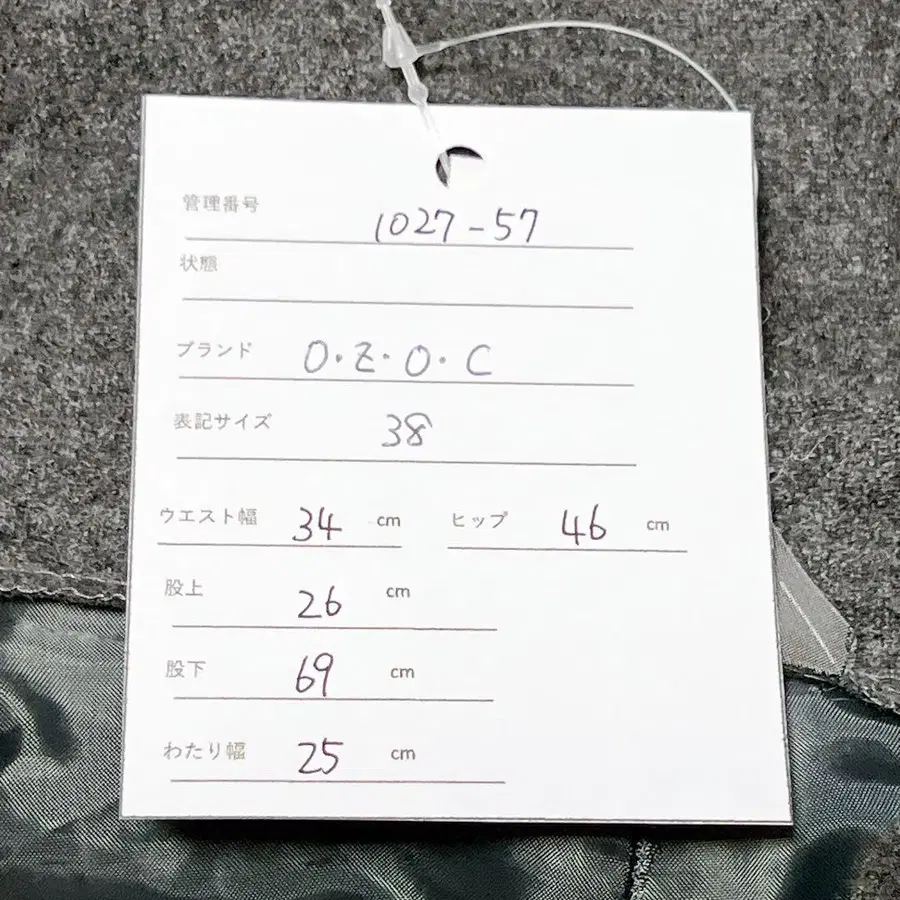 管理番号 1027-57
状態
ブランド O・Z・O・C
表記サイズ 38
ウエスト幅 34 cm ヒップ 46 cm
股上 26 cm
股下 69 cm
わたり幅 25 cm